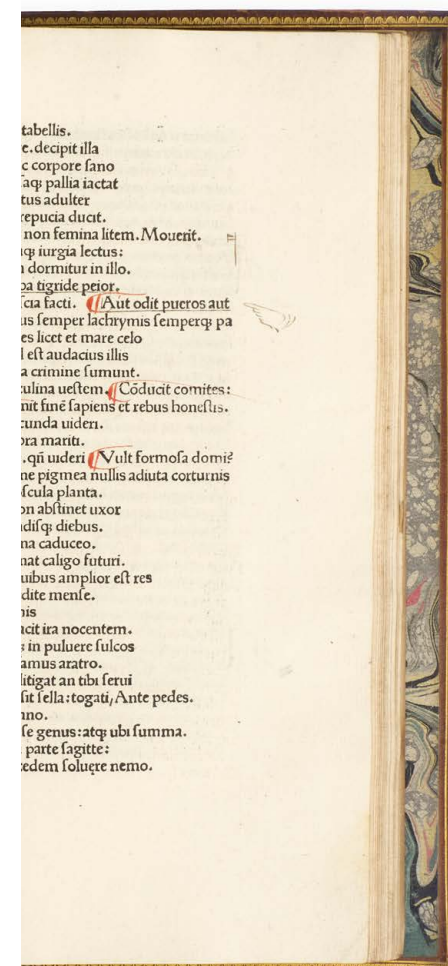 tabellis.
e. decipit illa
c corpore ſano
ſaqꝫ pallia iactat
tus adulter
repucia ducit.
non femina litem. Mouerit.
qꝫ iurgia lectus:
dormitur in illo.
ba tigride peior.
ſcia facti. ¶Aut odit pueros aut
us ſemper lachrymis ſemperqꝫ pa
es licet et mare celo
l eſt audacius illis
a crimine ſumunt.
culina ueſtem. ¶Cōducit comites:
nit finē ſapiens et rebus honeſtis.
cunda uideri.
ora mariti.
. qñ uideri ¶Vult formoſa domi?
ne pigmea nullis adiuta corturnis
ſcula planta.
on abſtinet uxor
diſqꝫ diebus.
na caduceo.
nat caligo futuri.
uibus amplior eſt res
dite menſe.
nis
acit ira nocentem.
ꝫ in puluere ſulcos
amus aratro.
litigat an tibi ſerui
ſit ſella: togati, Ante pedes.
nno.
ſe genus: atqꝫ ubi ſumma.
parte ſagitte:
cedem ſoluęre nemo.